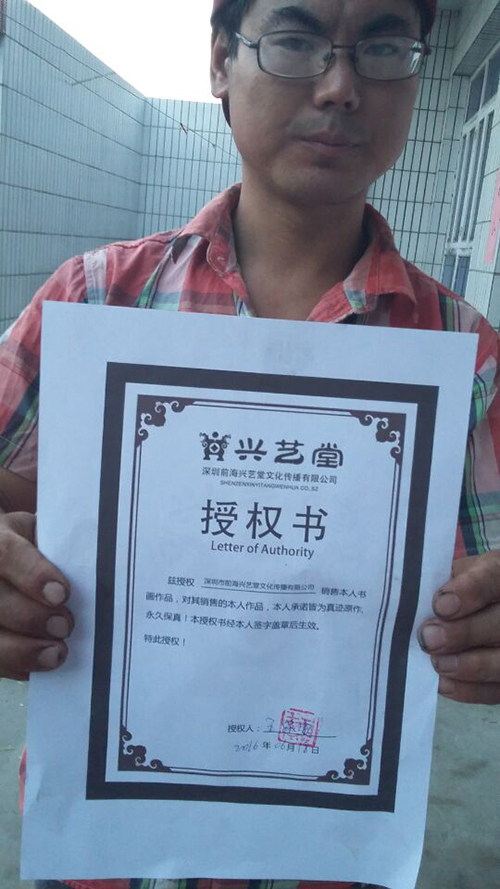 兴艺堂
深圳前海兴艺堂文化传播有限公司
SHENZENXINYITANGWENHUA CO.,SZ
授权书
Letter of Authority
兹授权 深圳市前海兴艺堂文化传播有限公司 销售本人书
画作品，对其销售的本人作品，本人承诺皆为真迹原作，
永久保真！本授权书经本人签字盖章后生效。
特此授权！
授权人：王
2016 年 06 月 18 日